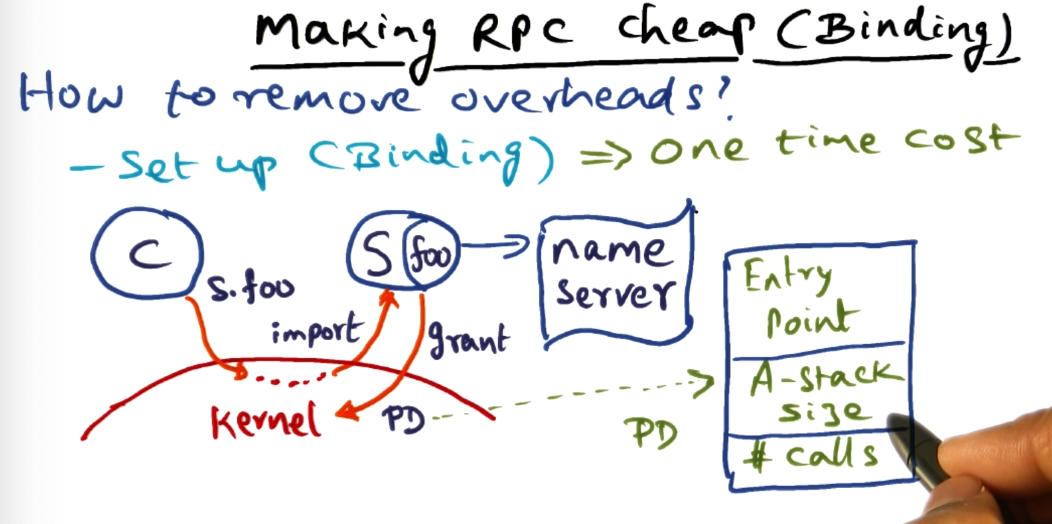 Making RPC cheap (Binding)
How to remove overheads?
- Set up (Binding) => One time cost
C
S
foo
name
server
s.foo
import
grant
Kernel
PD
PD
Entry
Point
A-stack
size
# calls